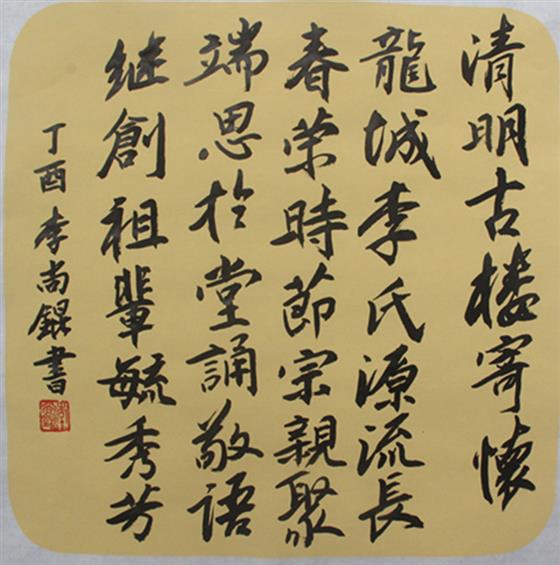 清明古楼寄懷
龍城李氏源流長
春荣時節宗親聚
端思扵堂誦敬語
继創祖輩毓秀芳
丁酉李尚錕書